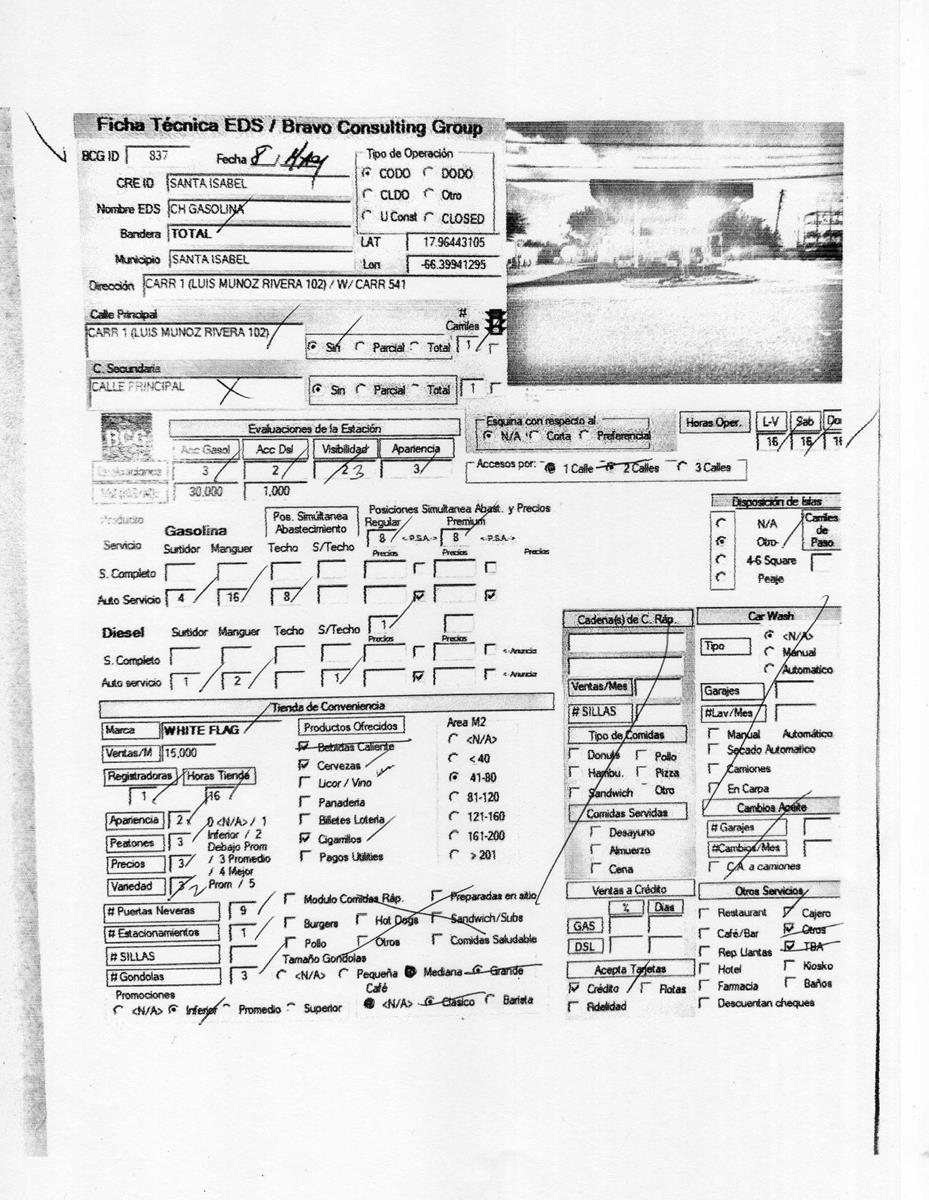 Ficha Técnica EDS / Bravo Consulting Group
BCG ID 837 Fecha 8, May
CRE ID SANTA ISABEL
Nombre EDS CH GASOLINA
Bandera TOTAL
Municipio SANTA ISABEL
Dirección CARR 1 (LUIS MUNOZ RIVERA 102) / W/ CARR 541
Tipo de Operación
CODO DODO
CLDO Otro
U Const CLOSED
LAT 17.96443105
Lon -66.39941295
Calle Principal # Carriles
CARR 1 (LUIS MUNOZ RIVERA 102)
Sin Parcial Total 1
C. Secundaria
CALLE PRINCIPAL
Sin Parcial Total 1
BCG
Evaluaciones de la Estación
Acc Gasol Acc Dsl Visibilidad Apariencia
Evaluaciones 3 2 2 3 3
30,000 1,000
Esquina con respecto al
N/A Corta Preferencial
Horas Oper. L-V Sab Do
16 16 16
Accesos por: 1 Calle 2 Calles 3 Calles
Producto Gasolina
Servicio Surtidor Manguer Techo S/Techo
Pos. Simúltanea Abastecimiento
Posiciones Simultanea Abast. y Precios
Regular Premium
8 <-P.S.A.-> 8 <-P.S.A.->
Precios Precios Precios
S. Completo
Auto Servicio 4 16 8
Diesel Surtidor Manguer Techo S/Techo 1
Precios Precios
S. Completo <-Anuncia
Auto servicio 1 2 1 <-Anuncia
Disposición de Islas
N/A
Otro
4-6 Square
Peaje
Carriles de Paso
Tienda de Conveniencia
Marca WHITE FLAG
Ventas/M 15,000
Registradoras Horas Tienda
1 16
Apariencia 2
Peatones 3
Precios 3
Variedad 3 2
0 <N/A> / 1
Inferior / 2
Debajo Prom
/ 3 Promedio
/ 4 Mejor
Prom / 5
# Puertas Neveras 9
# Estacionamientos 1
# SILLAS
# Gondolas 3
Productos Ofrecidos
Bebidas Caliente
Cervezas
Licor / Vino
Panaderia
Billetes Loteria
Cigarrillos
Pagos Utilities
Area M2
<N/A>
< 40
41-80
81-120
121-160
161-200
> 201
Modulo Comidas Ráp. Preparadas en sitio
Burgers Hot Dogs Sandwich/Subs
Pollo Otros Comidas Saludable
Tamaño Gondolas
<N/A> Pequeña Mediana Grande
Promociones
<N/A> Inferior Promedio Superior
Café
<N/A> Clásico Barista
Cadena(s) de C. Ráp.
Ventas/Mes
# SILLAS
Tipo de Comidas
Donuts Pollo
Hambu. Pizza
Sandwich Otro
Comidas Servidas
Desayuno
Almuerzo
Cena
Ventas a Crédito
% Dias
GAS
DSL
Acepta Tarjetas
Crédito Flotas
Fidelidad
Car Wash
Tipo <N/A>
Manual
Automatico
Garajes
#Lav/Mes
Manual Automático
Secado Automatico
Camiones
En Carpa
Cambios Aceite
# Garajes
#Cambios/Mes
C.A. a camiones
Otros Servicios
Restaurant Cajero
Café/Bar Otros
Rep Llantas TBA
Hotel Kiosko
Farmacia Baños
Descuentan cheques